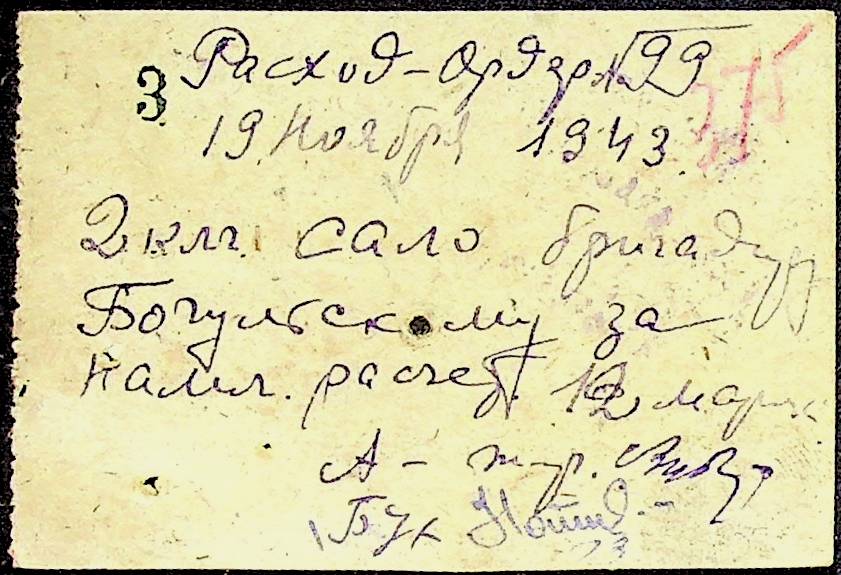 3 Расход-Ордер № 99
19 Ноября 1943
2 клг. сало бригадиру
Богульскому за
налич. расчет. 12 марок
А-
Бух